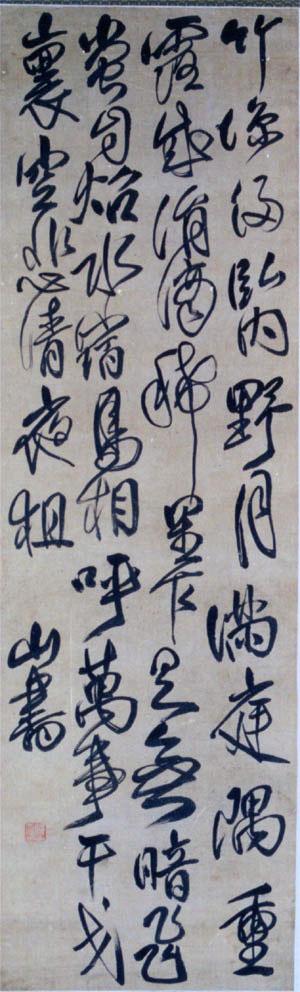 竹涼侵臥內野月滿庭隅重
露成涓滴稀星乍無暗飛
螢自炤水宿鳥相呼萬事干戈
裏空悲清夜徂 山書